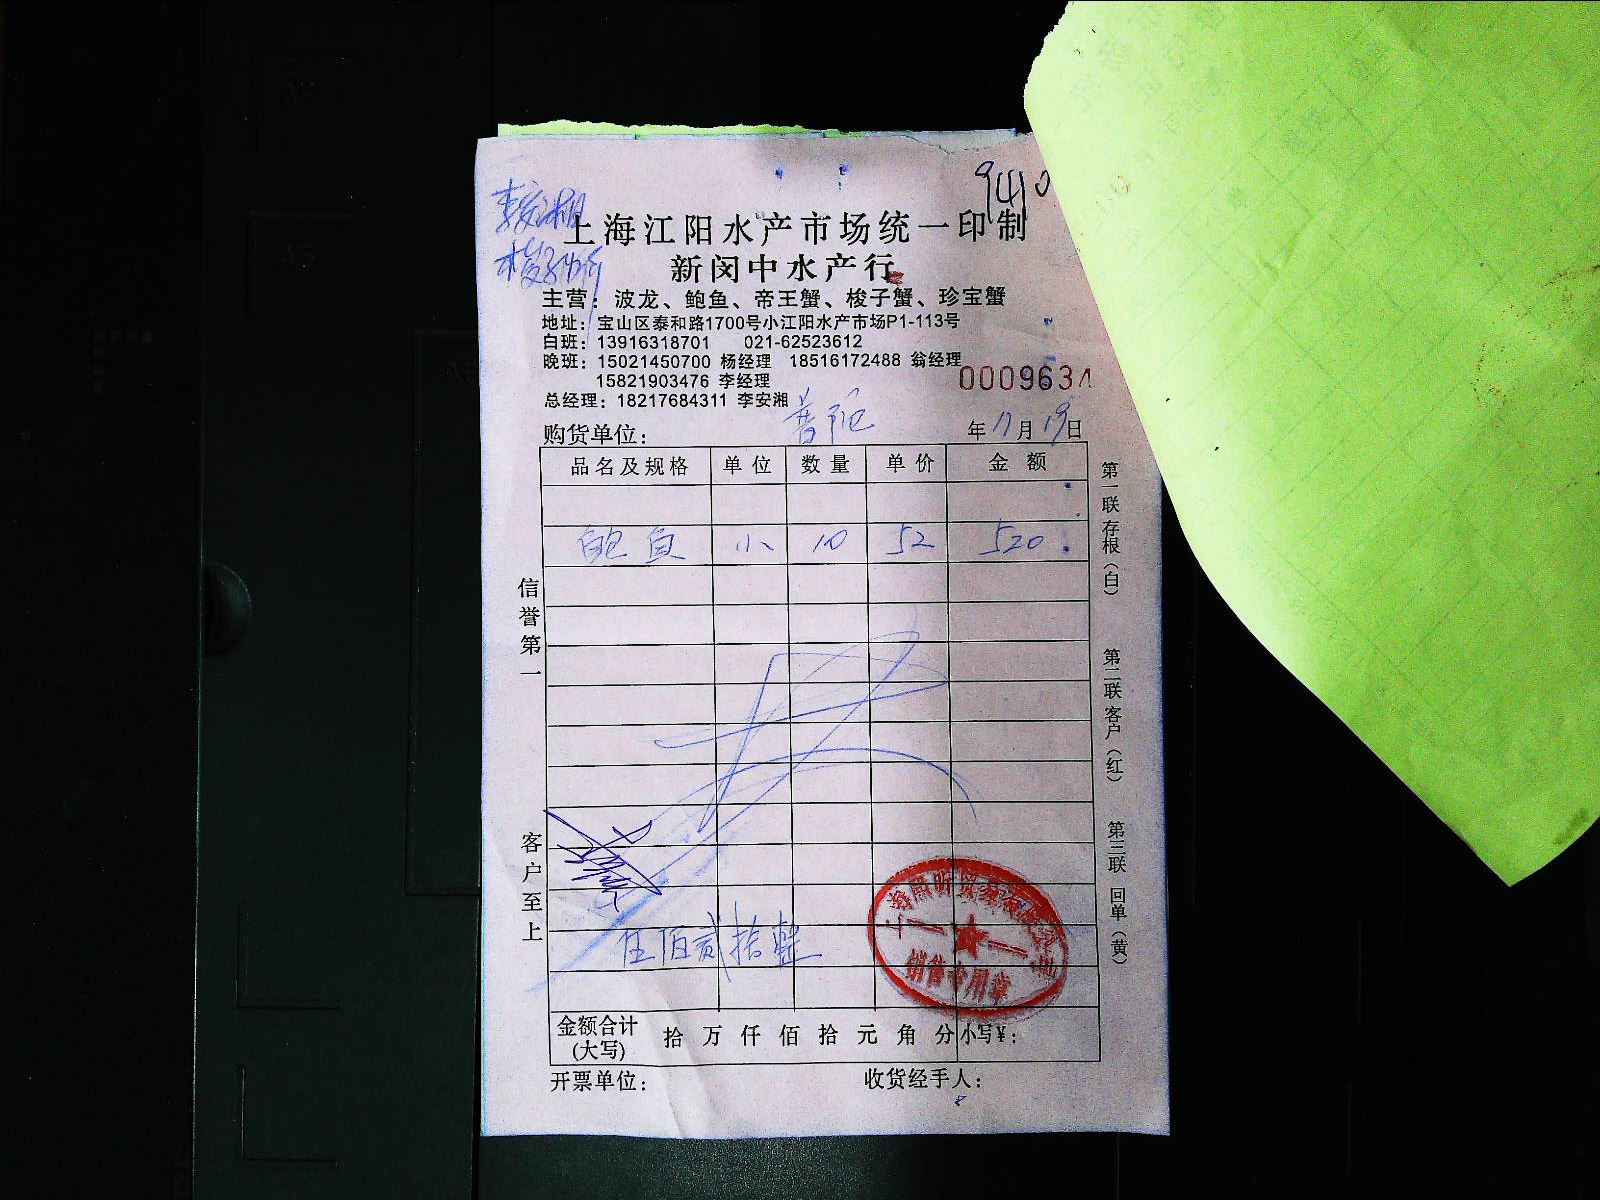 9410
上海江阳水产市场统一印制
新闵中水产行
主营：波龙、鲍鱼、帝王蟹、梭子蟹、珍宝蟹
地址：宝山区泰和路1700号小江阳水产市场P1-113号
白班：13916318701 021-62523612
晚班：15021450700 杨经理 18516172488 翁经理
15821903476 李经理
0009634
总经理：18217684311 李安湘
购货单位： 普陀 年 11月 19日
品名及规格 单位 数量 单价 金额
鲍鱼 小 10 52 520
信誉第一
客户至上
第一联 存根（白）
第二联 客户（红）
第三联 回单（黄）
伍佰贰拾
销售专用章
金额合计(大写) 拾 万 仟 佰 拾 元 角 分 小写¥：
开票单位： 收货经手人：